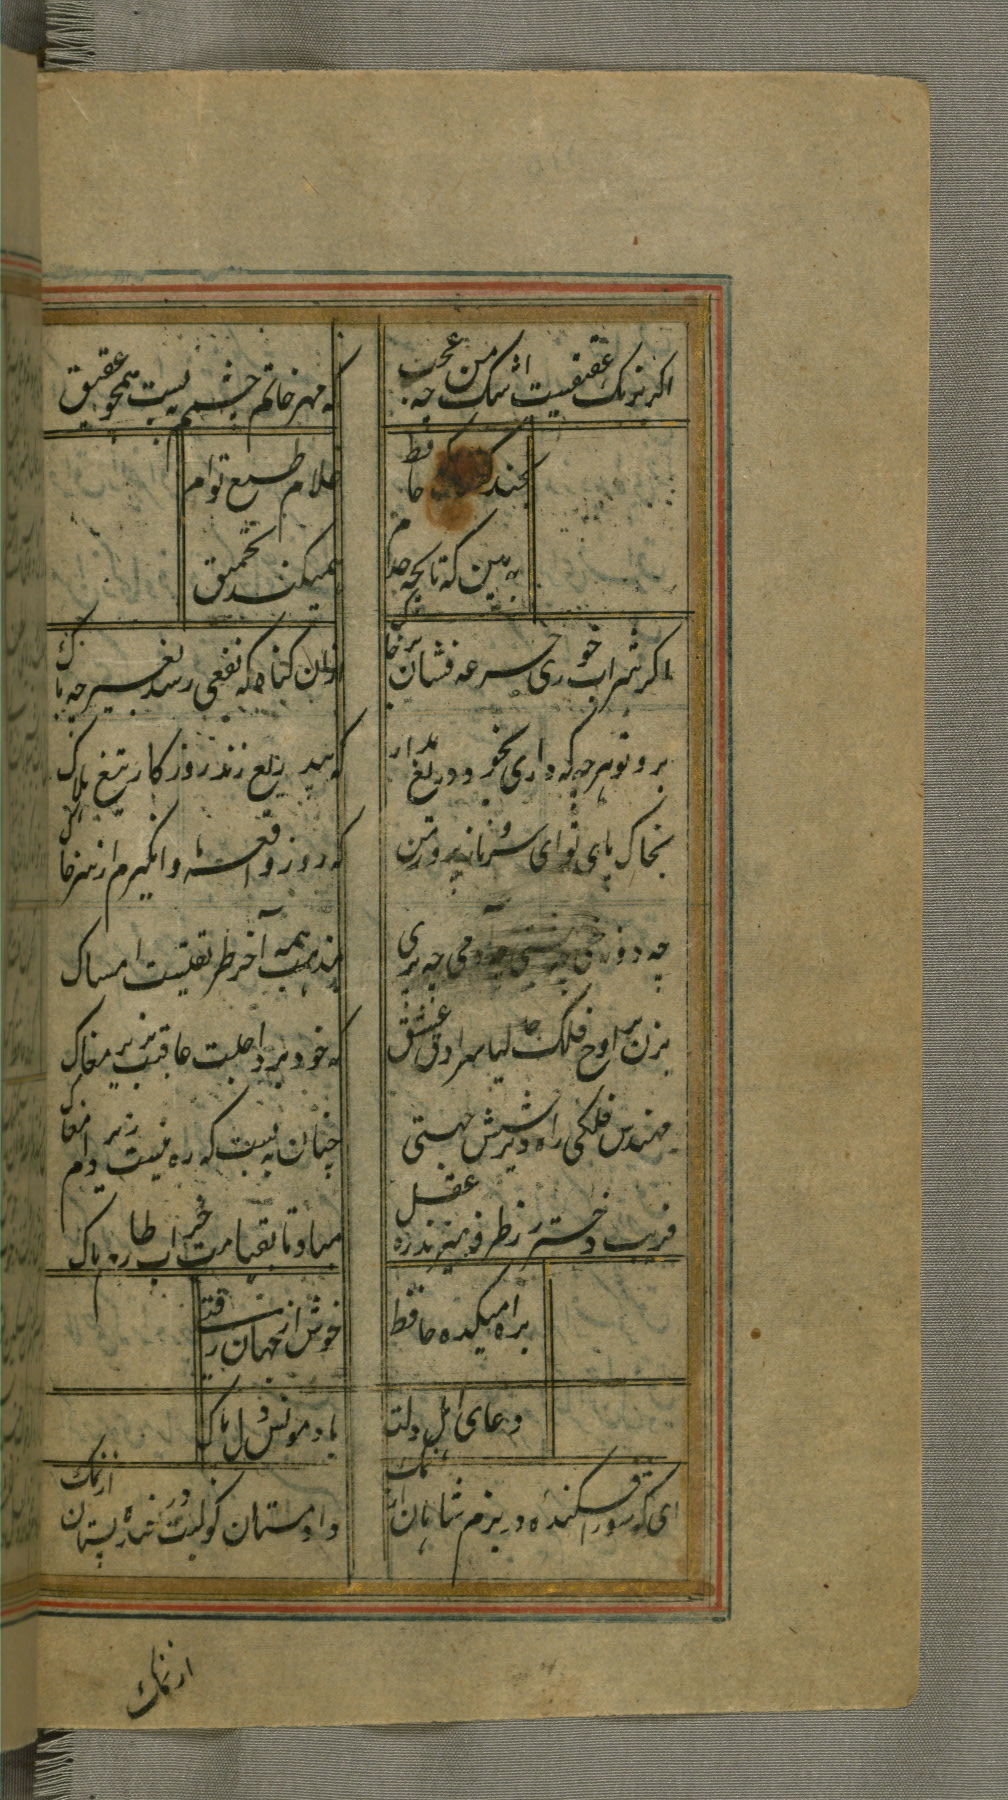 اکر برنک عقیقیست اشک من چه عجب
که مهر خاتم چشمم بست همچو عقیق
بخنده کفت که حافظ
غلام طبع توام
به بین که تا بچه حدم
همیکند تحمیق
اکر شراب خوری جرعه فشان بر خاک
ازان کناه که نفعی رسد بغیر چه باک
برو تو هرچه که داری بخور و دریغ مدار
که بیدریغ زند روزکار تیغ هلاک
بخاک پای تو ای سرو نازپرور من
که روز واقعه پا وانکیرم از سر خاک
چه دوزخی چه بهشتی چه آدمی چه پری
بمذهب همه آخر طریقتست امساک
که خود برد اجلت عاقبت بزیر مغاک
مهندس فلکی راه دیر شش جهتی
چنان به بست که ره نیست زیر دام مغاک
فریب دختر رز طرفه میزند ره عقل
مباد تا بقیامت خراب طارم تاک
براه میکده حافظ
خوش از جهان رفتی
دعای اهل دلت
باد مونس دل پاک
ای که شور افکنده در بزم شاهان از نمک
ار نمک